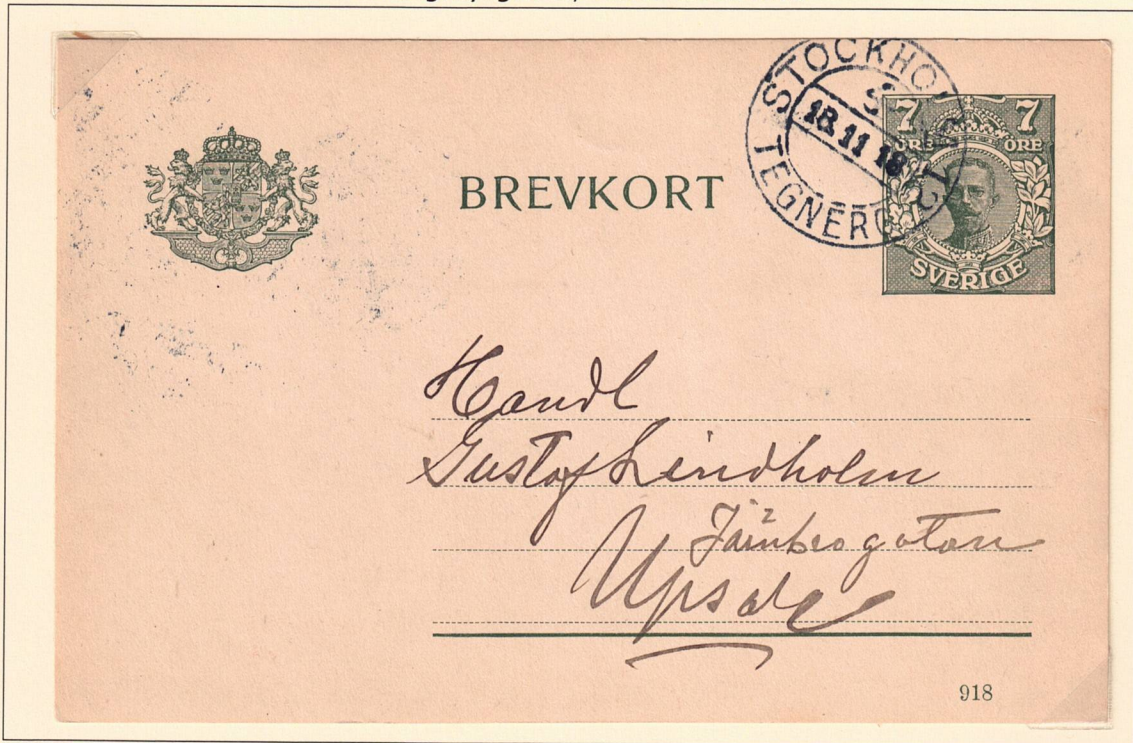 BREVKORT
STOCKHOLM 12
18.11.18
TEGNERG
7 7
ÖRE ÖRE
SVERIGE
Handl
Gustaf Lindholm
Järnbrogatan
Upsala
918